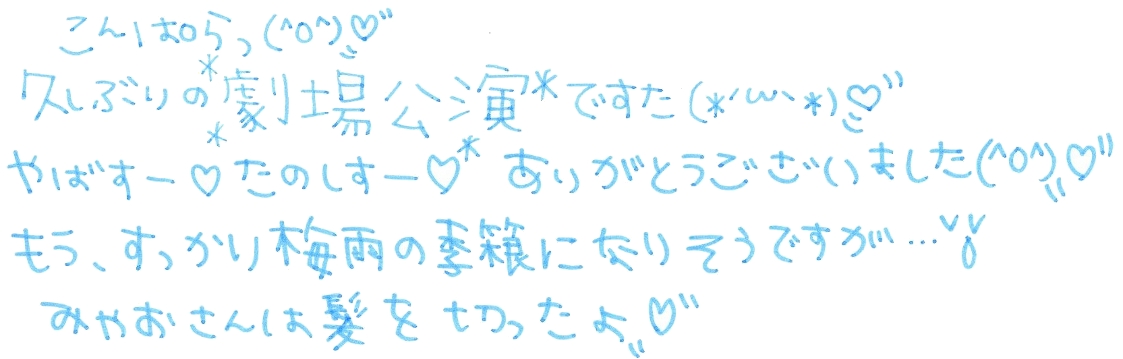 こんはOらっ(^O^)♡"
久しぶりの*劇場公演*ですた(*´ω`*)♡"
やばすー♡たのしすー♡*ありがとうございました(^O^)♡"
もう、すっかり梅雨の季節になりそうですが…
みやおさんは髪を切ったよ♡"